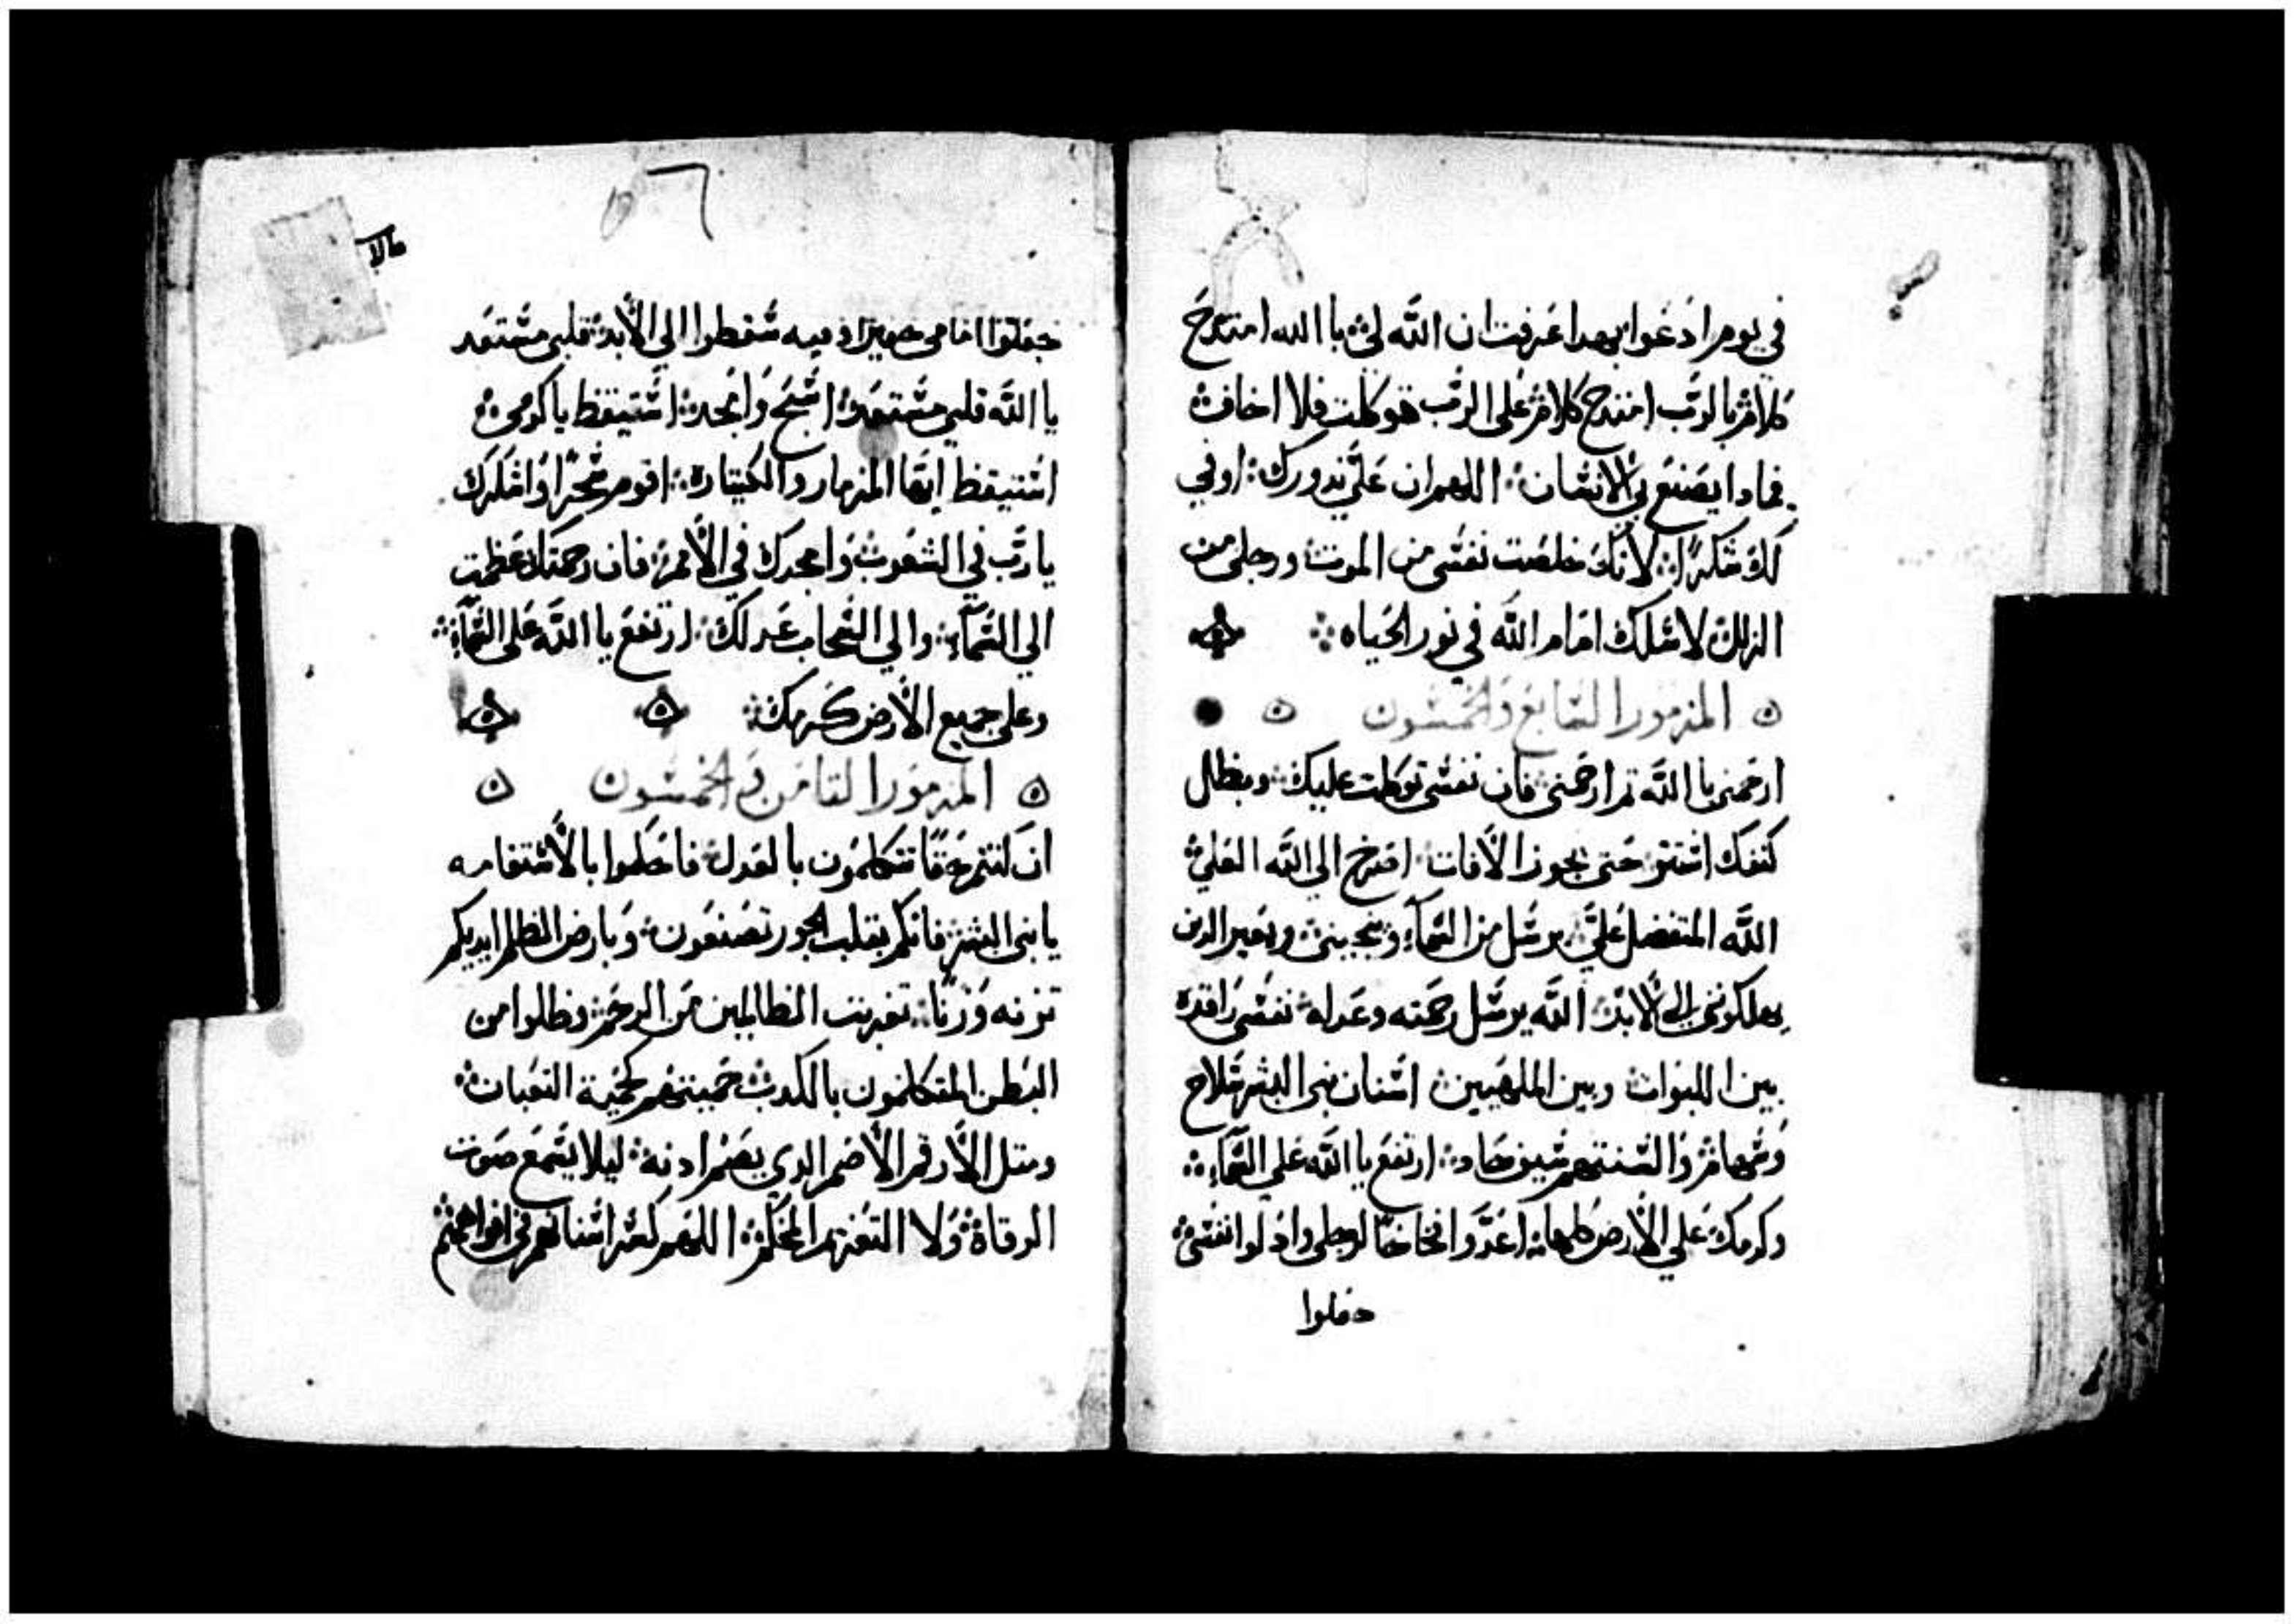 في يوم ادعوا بهدا عرفت ان الله لي يا الله امتدح
كلام بالرب امتدح كلام على الرب توكلت فلا اخاف
فمادا يصنع بي الانسان اللهم ان علي ندورك اوفي
لك شكرا لانك خلصت نفسي من الموت ورجلي من
الزلل لاسلك امام الله في نور الحياه
المزمور السابع والخمسون
ارحمني يا الله تم ارحمني فان نفسي توكلت عليك وبظلال
كنفك استتر حتى يجوز الافات اصرخ الي الله العلي
الله المتفضل علي يرسل من السماء وينجيني ويعير الدين
يهلكونني الي الابد الله يرسل رحمته وعدله نفسي راقده
بين اللبوات وبين الملهبين اسنان بني البشر سلاح
وسهام والسنتهم سيف حاد ارتفع يا الله علي السماء
وكرمك علي الارض كلها اعدوا فخاخا لرجلي وادلوا نفسي
حفلوا
حفلوا امامي حفيرا وفيه سقطوا الي الابد قلبي مستعد
يا الله قلبي مستعد اسبح وامجد استيقظ يا كرمي
استيقظ ايها المزمار والكيتاره اقوم سحرا واشكرك
يا رب في الشعوب وامجدك في الامم فان رحمتك عظمت
الي السماء والي السحاب عدلك ارتفع يا الله على السماء
وعلي جميع الارض كرمك
المزمور التامن والخمسون
ان كنتم حقا تتكلمون بالعدل فاحكموا بالاستقامه
يا بني البشر فانكم بقلب الجور تصنعون وبارض الظلم ايديكم
تزنه وزنا تغربت الظالمين من الرحم وظلوا من
البطن المتكلمون بالكدب حميتهم كحمية التعبان
ومتل الارقم الاصم الدي يصم ادنه ليلا يسمع صوت
الرقاة ولا التعزيم المحكم اللهم كسر اسنانهم في افواههم